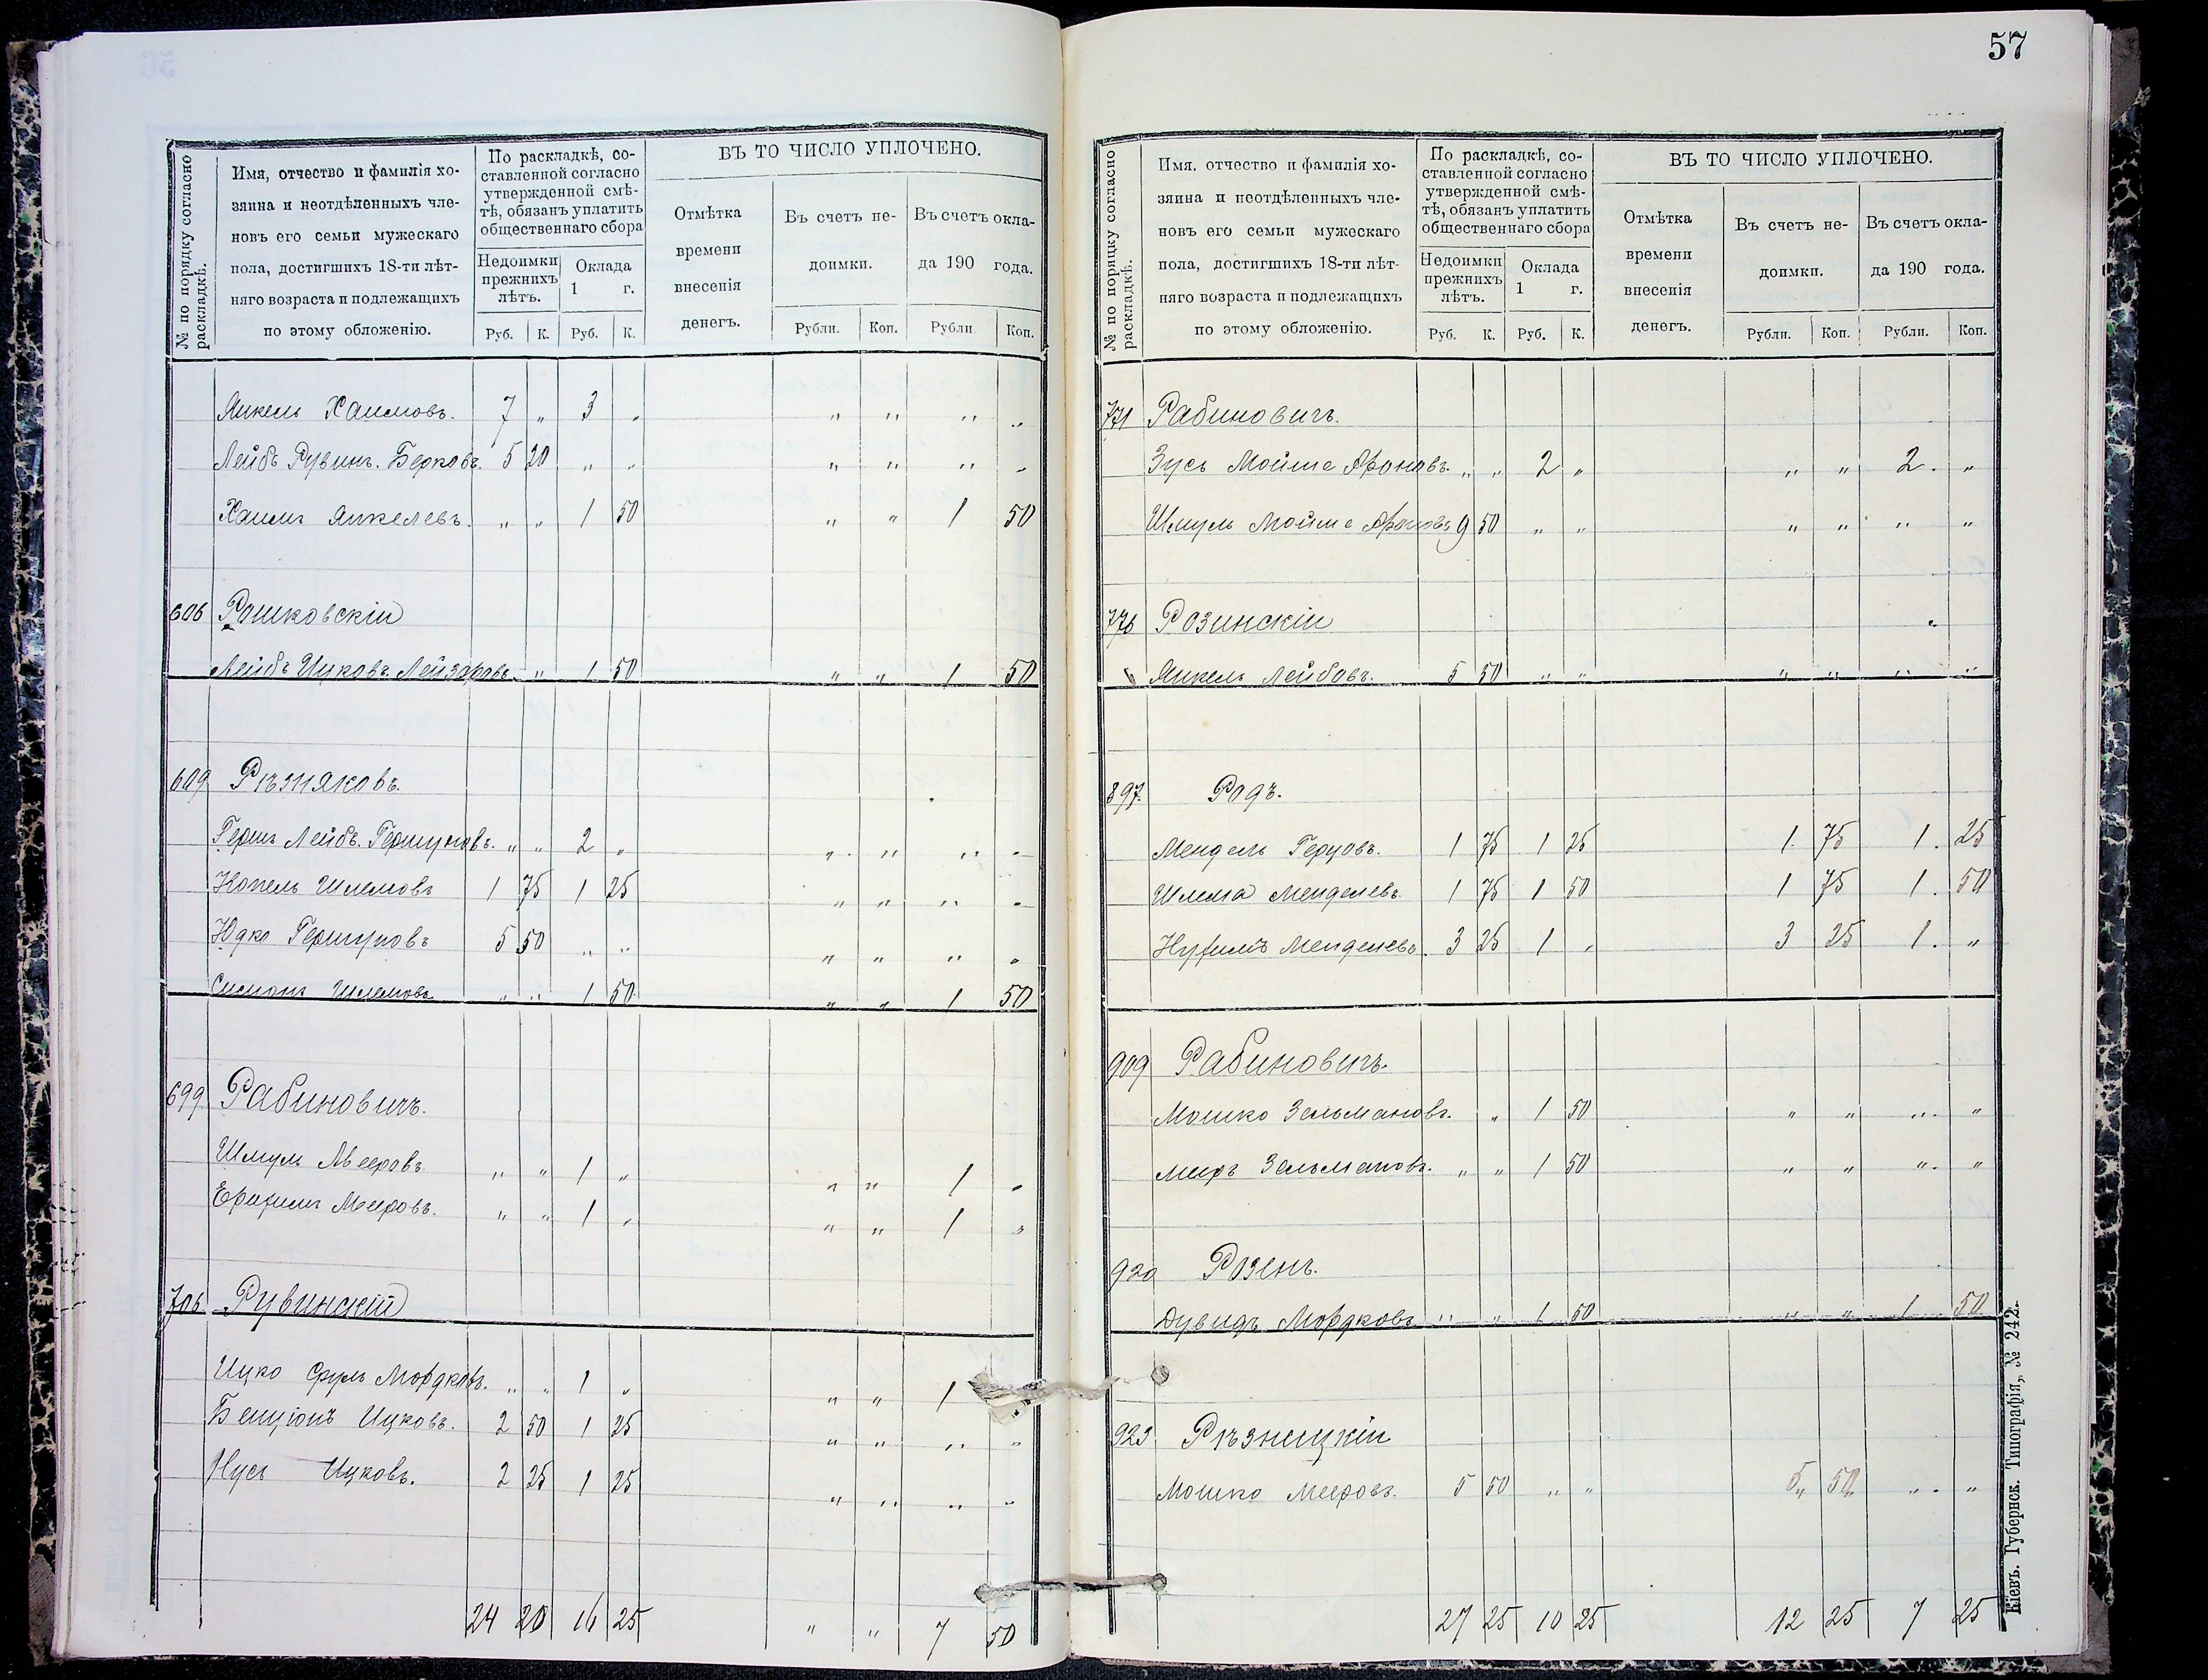 57
№ по порядку согласно раскладкѣ.
Имя, отчество и фамилія хо-
зяина и неотдѣленныхъ чле-
новъ его семьи мужескаго
пола, достигшихъ 18-ти лѣт-
няго возраста и подлежащихъ
по этому обложенію.
По раскладкѣ, со-
ставленной согласно
утвержденной смѣ-
тѣ, обязанъ уплатить
общественнаго сбора
Недоимки
прежнихъ
лѣтъ.
Оклада
1 г.
Руб. К. Руб. К.
ВЪ ТО ЧИСЛО УПЛОЧЕНО.
Отмѣтка
времени
внесенія
денегъ.
Въ счетъ не-
доимки.
Въ счетъ окла-
да 190 года.
Рубли. Коп. Рубли Коп.
Янкель Хаимовъ. 7 „ 3 „ „ „ „ „
Лейбъ Рувинъ. Берковъ. 5 20 „ „ „ „ „ „
Хаимъ Янкелевъ. „ „ 1 50 „ „ 1 50
606 Рашковскій
Лейбъ Ицковъ Лейзоровъ. „ 1 50 „ „ 1 50
609 Рѣзняковъ.
Гершъ Лейбъ. Гершуновъ. „ „ 2 „ „ „ „ „
Копель Шлемовъ 1 75 1 25 „ „ „ „
Юдко Гершуновъ 5 50 „ „ „ „ „ „
Симонъ Шлемовъ „ „ 1 50 „ „ 1 50
699 Рабиновичъ.
Шмуль Мееровъ „ „ 1 „ „ „ 1 „
Ефроимъ Мееровъ. „ „ 1 „ „ „ 1 „
706 Рувинскій
Ицко Сруль Мордковъ. „ „ 1 „ „ „ 1
Бенціонъ Ицковъ. 2 50 1 25 „ „ „ „
Нусъ Ицковъ. 2 25 1 25 „ „ „ „
24 20 16 25 „ „ 7 50
№ по порядку согласно раскладкѣ.
Имя, отчество и фамилія хо-
зяина и неотдѣленныхъ чле-
новъ его семьи мужескаго
пола, достигшихъ 18-ти лѣт-
няго возраста и подлежащихъ
по этому обложенію.
По раскладкѣ, со-
ставленной согласно
утвержденной смѣ-
тѣ, обязанъ уплатить
общественнаго сбора
Недоимки
прежнихъ
лѣтъ.
Оклада
1 г.
Руб. К. Руб. К.
ВЪ ТО ЧИСЛО УПЛОЧЕНО.
Отмѣтка
времени
внесенія
денегъ.
Въ счетъ не-
доимки.
Въ счетъ окла-
да 190 года.
Рубли. Коп. Рубли. Коп.
771 Рабиновичъ.
Зусь Мойше Ароновъ. „ „ 2 „ „ „ 2. „
Шмуль Мойше Ароновъ 9 50 „ „ „ „ „ „
776 Розинскій
Янкель Лейбовъ. 5 50 „ „ „ „ „ „
897. Родъ.
Мендель Герцовъ. 1 75 1 25 1. 75 1. 25
Шлема Менделевъ. 1 75 1 50 1 75 1. 50
Нухимъ Менделевъ. 3 25 1 „ 3 25 1. „
909 Рабиновичъ.
Мошко Зельмановъ. „ 1 50 „ „ „ „
Меиръ Зельмановъ. „ „ 1 50 „ „ „ „
920 Розенъ.
Дувидъ Мордковъ „ „ 1 50 „ „ 1. 50
923 Рѣзницкій
Мошко Мееровъ. 5 50 „ „ 5„ 50„ „ „
27 25 10 25 12 25 7 25
Кіевъ. Губернск. Типографія, № 242.